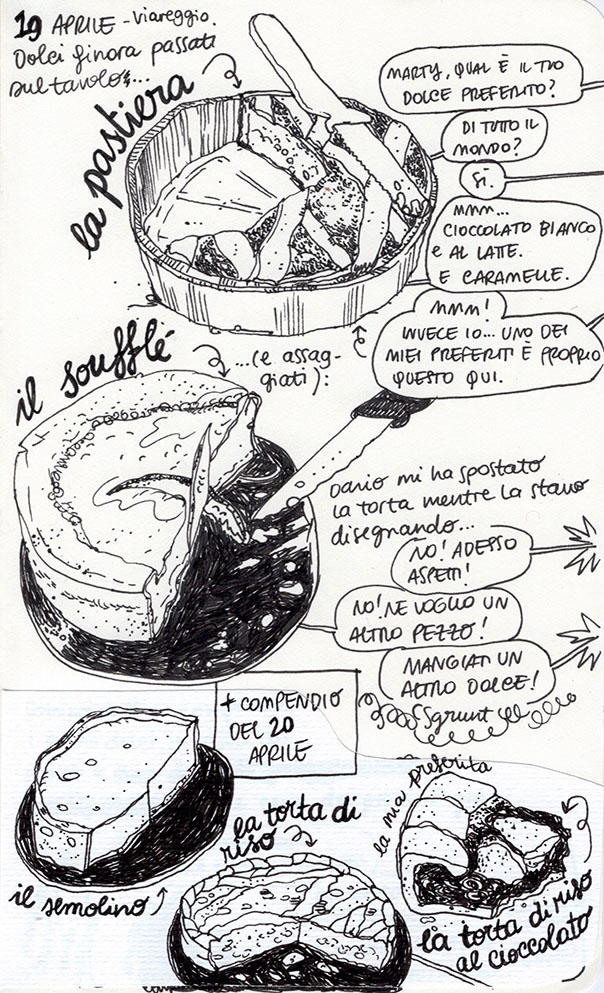 19 APRILE - viareggio.
Dolci finora passati
sul tavolo...
la pastiera
MARTY, QUAL È IL TUO
DOLCE PREFERITO?
DI TUTTO IL
MONDO?
SI.
MMM...
CIOCCOLATO BIANCO
E AL LATTE.
E CARAMELLE.
MMM!
INVECE IO... UNO DEI
MIEI PREFERITI È PROPRIO
QUESTO QUI.
...(e assag-
giati):
il soufflé
Dario mi ha spostato
la torta mentre la stavo
disegnando...
NO! ADESSO
ASPETTI!
NO! NE VOGLIO UN
ALTRO PEZZO!
MANGIATI UN
ALTRO DOLCE!
Sgrunt
+ COMPENDIO
DEL 20
APRILE
il semolino
la torta di
riso
la mia preferita
la torta di riso
al cioccolato